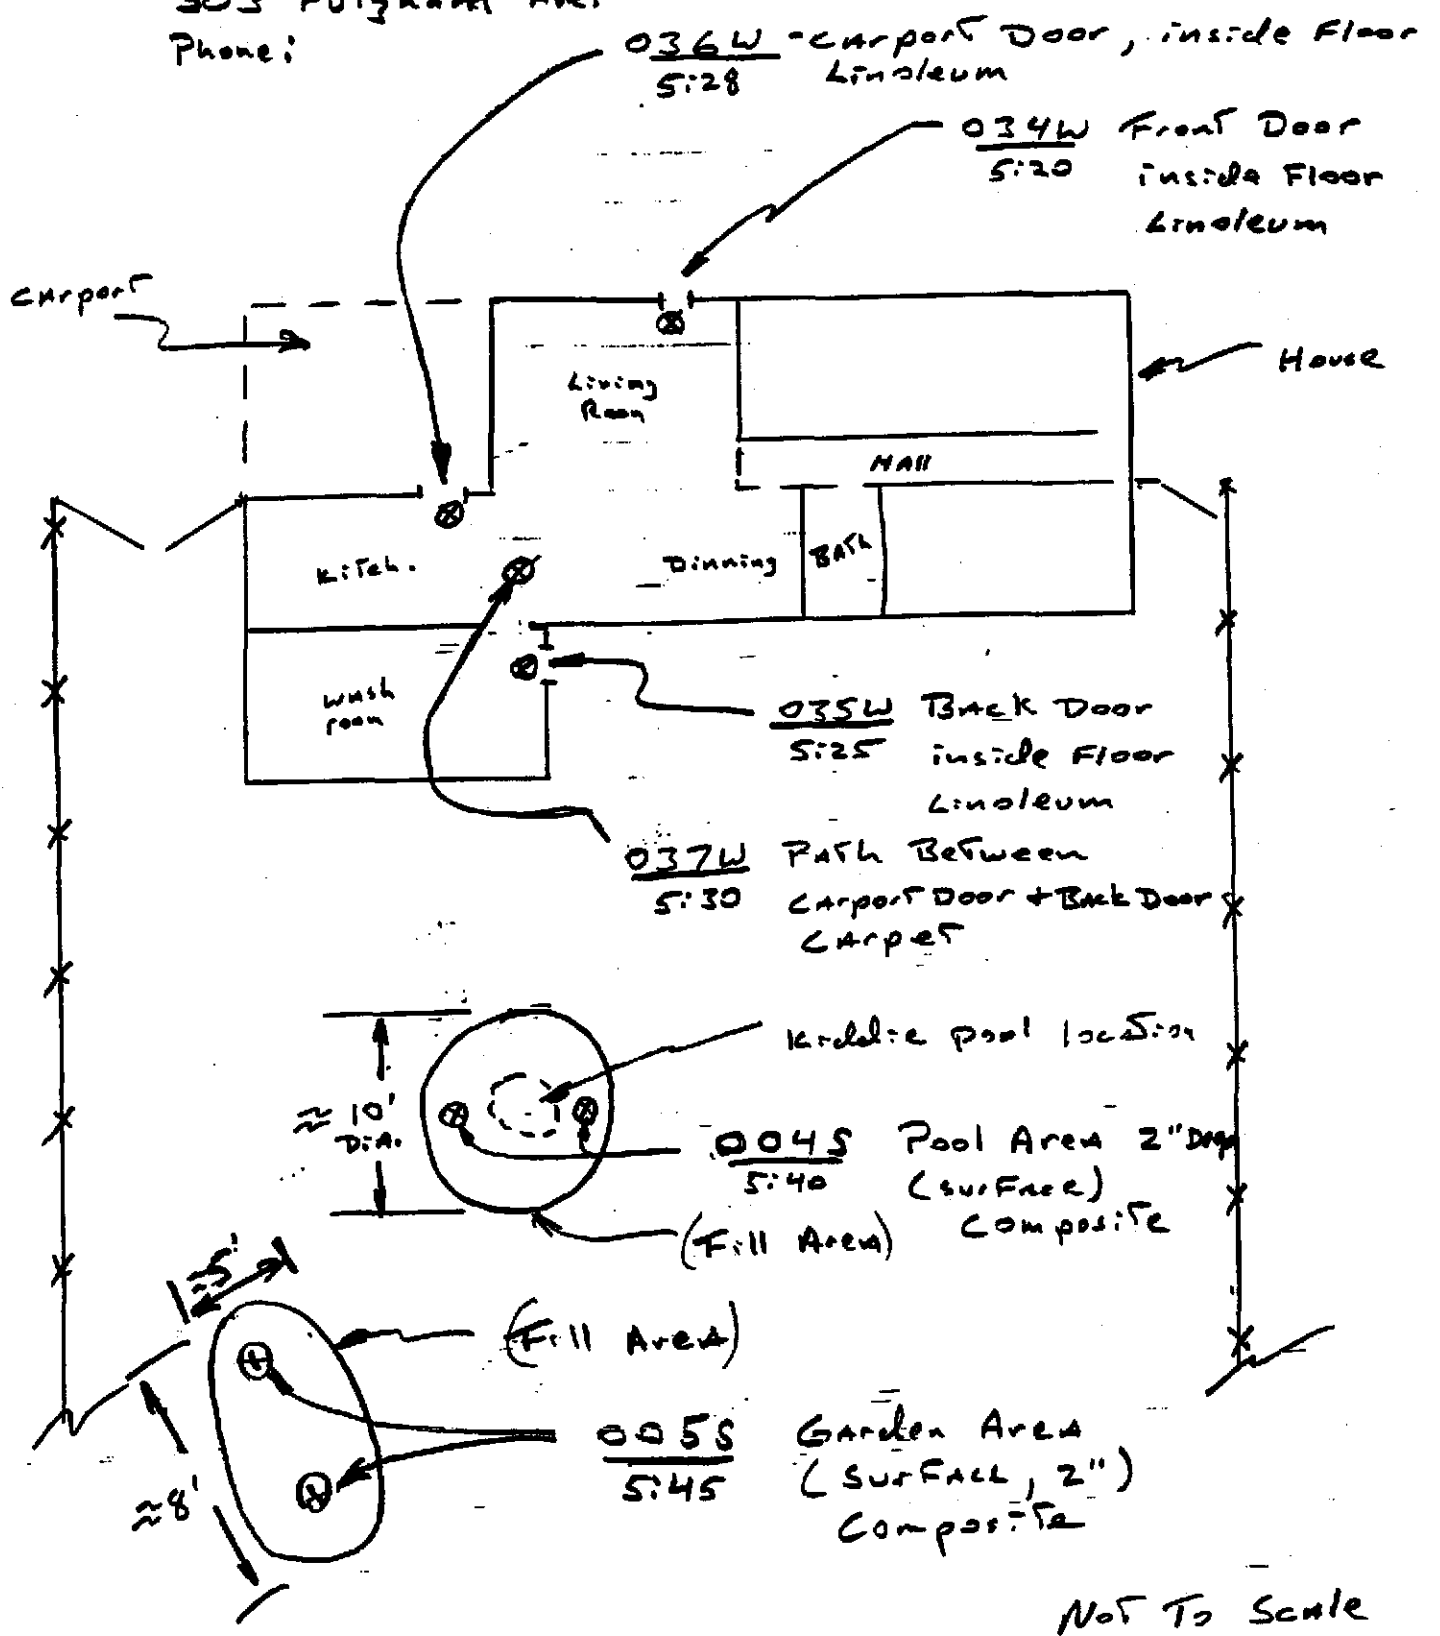 Phone:
036W - Carport Door, inside Floor
5:28 Linoleum
034W Front Door
5:20 inside Floor
Linoleum
Carport
House
Living
Room
Hall
Kitch.
Dinning
Bath
Wash
room
035W Back Door
5:25 inside Floor
Linoleum
037W Path Between
5:30 Carport Door + Back Door
Carpet
Kiddie pool location
≈ 10'
Dia.
004S Pool Area 2"
5:40 (surface)
Composite
(Fill Area)
≈5'
(Fill Area)
005S Garden Area
5:45 (Surface, 2")
Composite
≈8'
Not To Scale